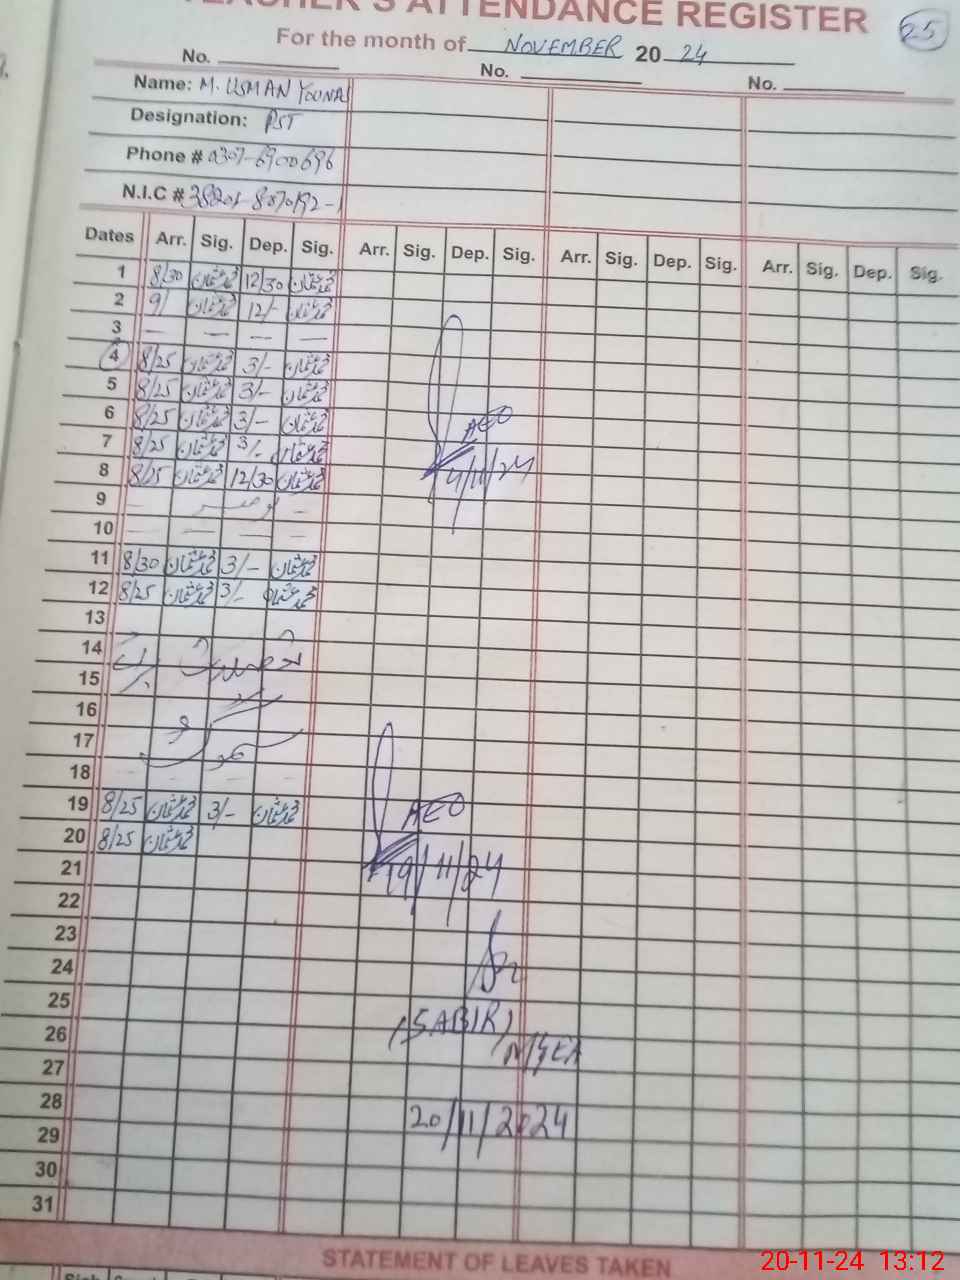 TEACHER'S ATTENDANCE REGISTER
25
For the month of NOVEMBER 20 24
No. No. No.
Name: M. USMAN YOUNAS
Designation: PST
Phone # 0307-6900696
N.I.C #
Dates Arr. Sig. Dep. Sig. Arr. Sig. Dep. Sig. Arr. Sig. Dep. Sig. Arr. Sig. Dep. Sig.
1 8/30 محمد عثمان 12/30 محمد عثمان
2 9/ محمد عثمان 12/- محمد عثمان
3 — — — —
4 8/25 محمد عثمان 3/- محمد عثمان
5 8/25 محمد عثمان 3/- محمد عثمان
6 8/25 محمد عثمان 3/- محمد عثمان
AEO
7 8/25 محمد عثمان 3/- محمد عثمان
4/11/24
8 8/25 محمد عثمان 12/30 محمد عثمان
9
10
11 8/30 محمد عثمان 3/- محمد عثمان
12 8/25 محمد عثمان 3/- محمد عثمان
13
14
15
16
17
18
19 8/25 محمد عثمان 3/- محمد عثمان
AEO
20 8/25 محمد عثمان
21
19/11/24
22
23
24
25
26
(SABIR)
27
MGEA
28
29
20/11/2024
30
31
STATEMENT OF LEAVES TAKEN
20-11-24 13:12